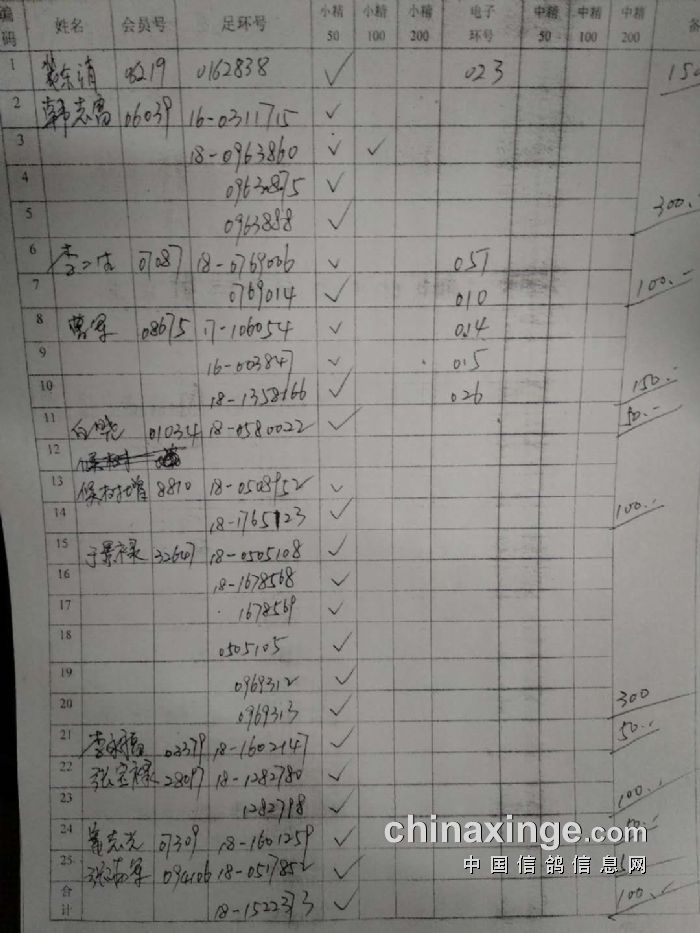 编码 姓名 会员号 足环号 小精50 小精100 小精200 电子环号 中精50 中精100 中精200 备
1 东消 0162838 ✓ 023 150
2 韩志富 06039 16-0311715 ✓
3 18-0963860 ✓ ✓
4 0963875 ✓
5 0963888 ✓ 300.-
6 07087 18-0769006 ✓ 051
7 0769014 ✓ 010 100.-
8 曹军 08675 17-106054 ✓ 014
9 16-003847 ✓ 015
10 18-1358166 ✓ 026 150.-
11 白艳 01034 18-0580022 ✓ 50.-
12
13 候树增 8810 18-0508952 ✓
14 18-1765123 ✓ 100.-
15 于景禄 32647 18-0505108 ✓
16 18-1678568 ✓
17 1678569 ✓
18 0505105 ✓
19 0969312 ✓
20 0969313 ✓ 300
21 李永福 02379 18-1602147 ✓ 50.-
22 张宝禄 28097 18-1282780 ✓
23 1282798 ✓ 100.-
24 董志光 07309 18-1601259 ✓
25 094106 18-0517852 ✓
合计 18-1522373 ✓ 100.-
chinaxinge.com
中国信鸽信息网